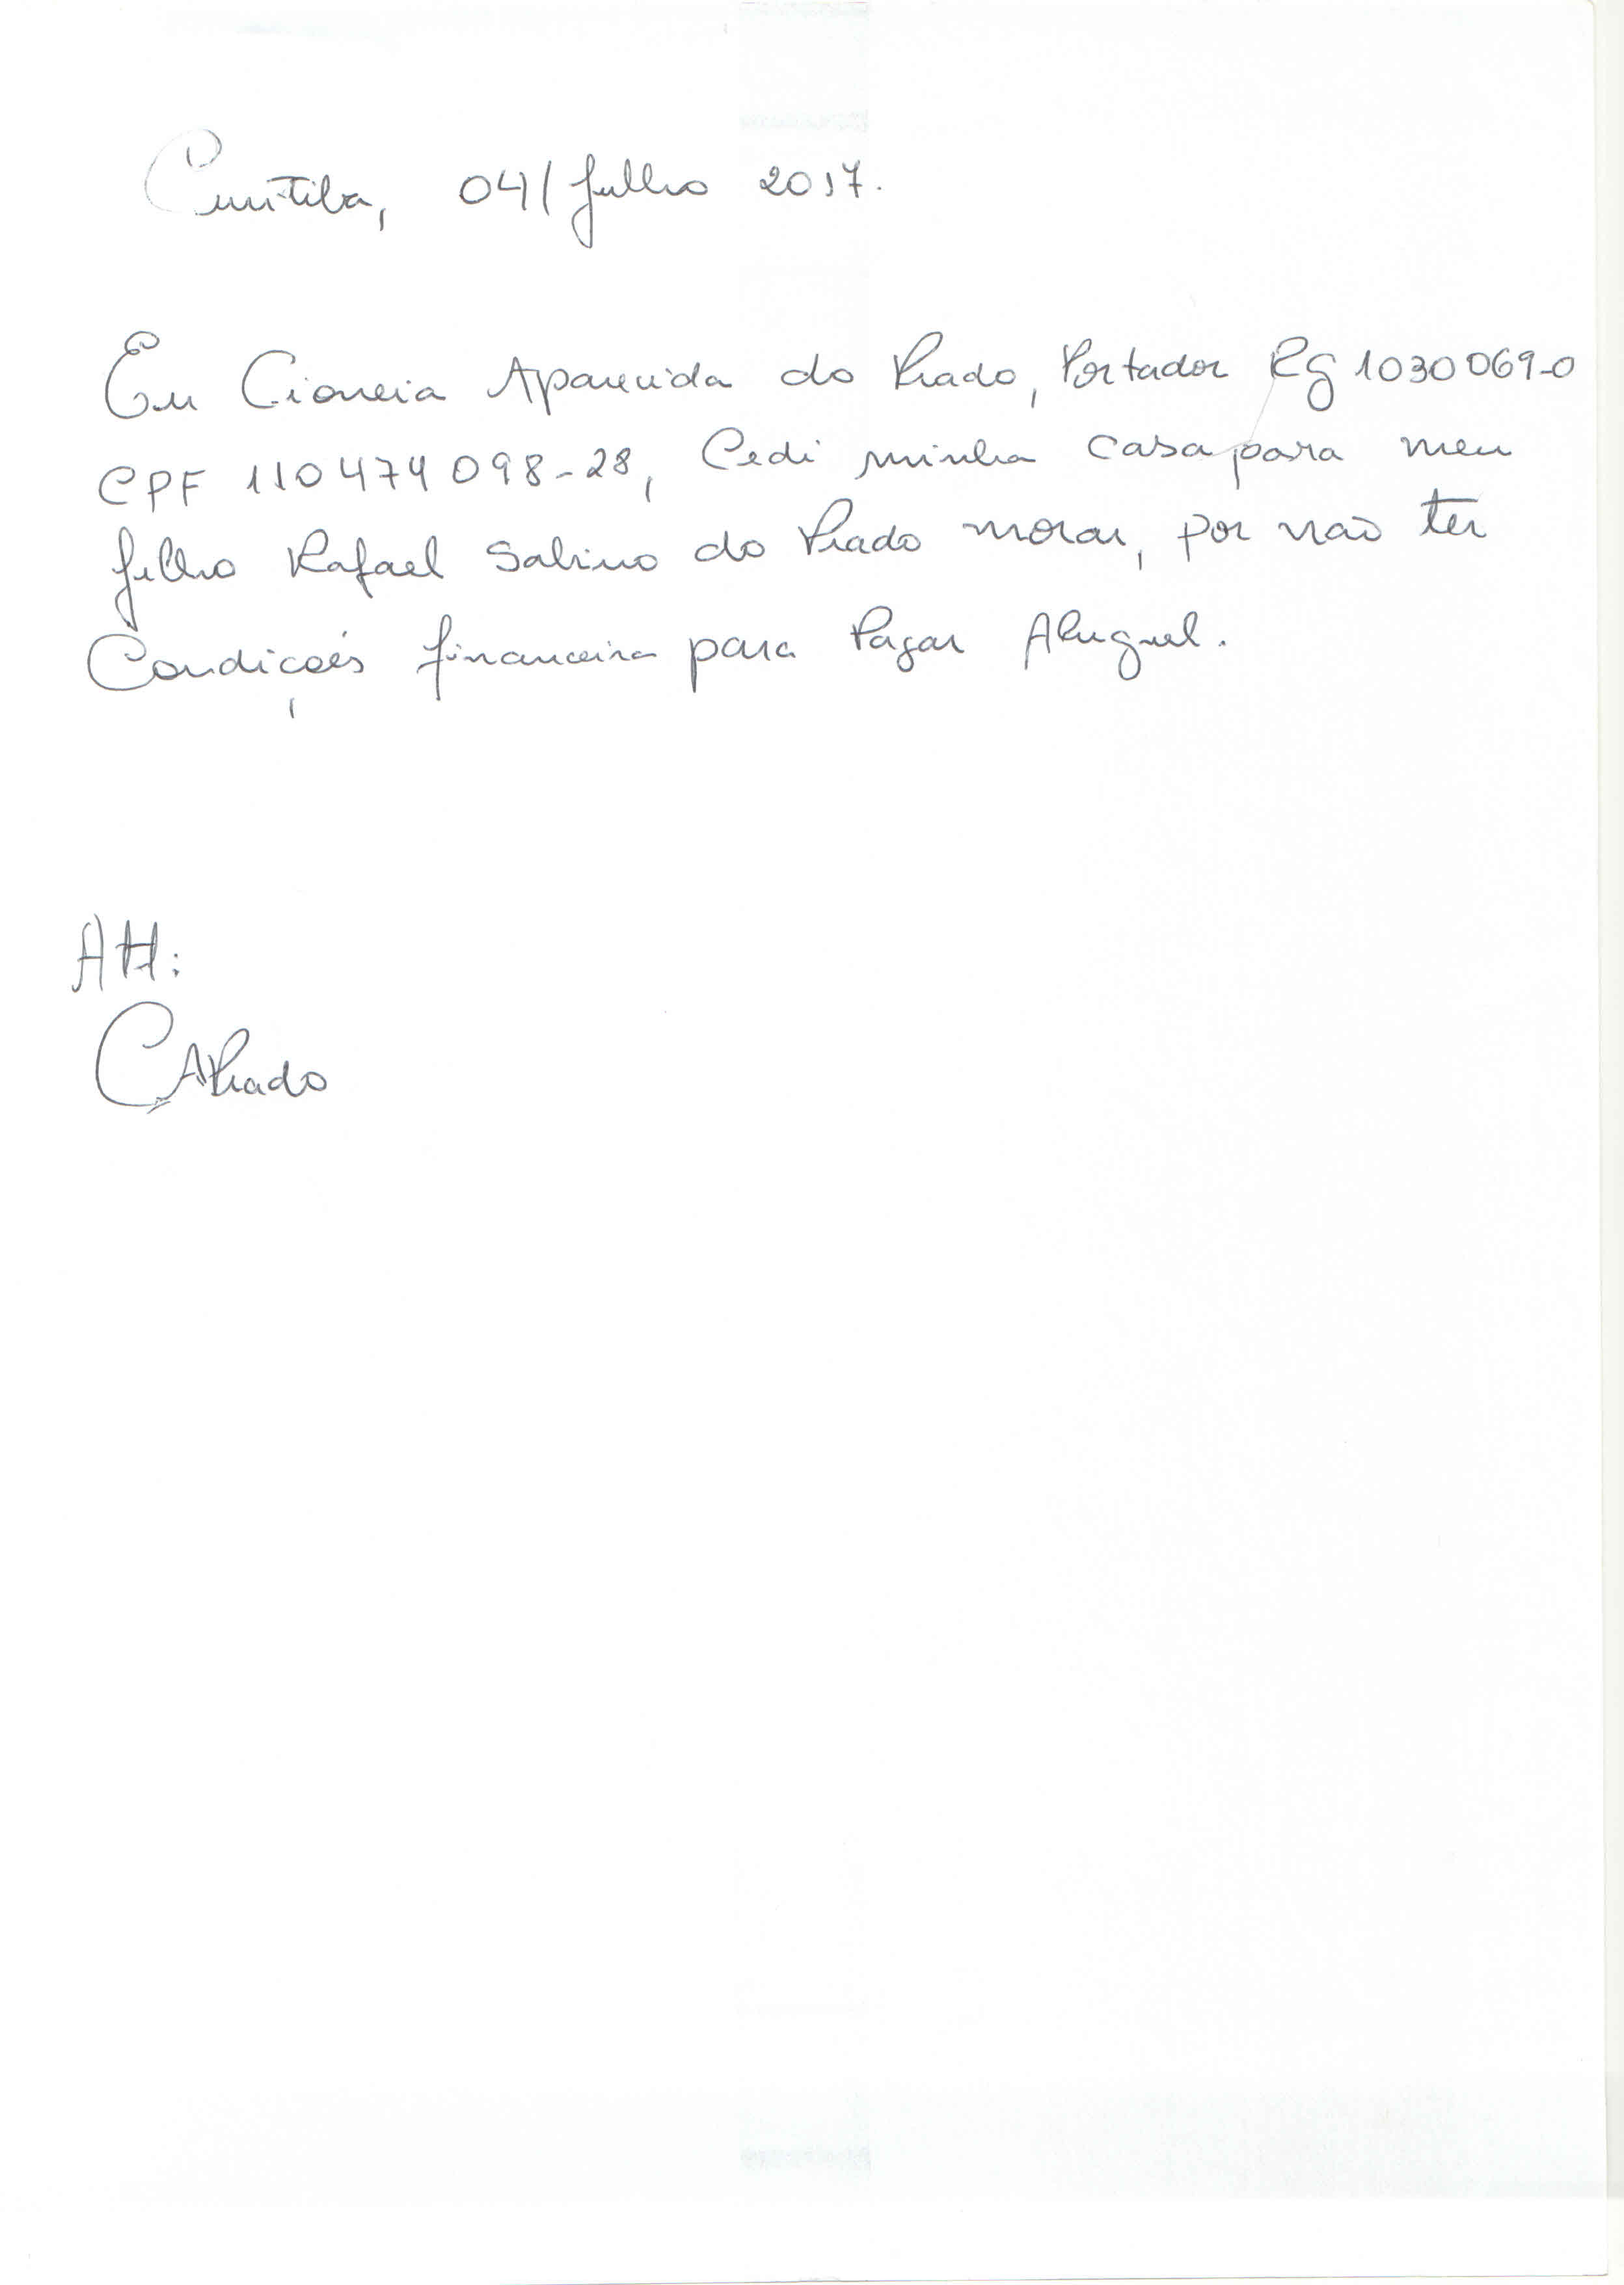 Curitiba, 04/Julho 2017.
Eu Cioneia Aparecida do Prado, Portador Rg 1030069-0
CPF 110474098-28, Cedi minha casa para meu
filho Rafael Sabino do Prado morar, por não ter
Condições financeira para Pagar Aluguel.
Att:
CAPrado